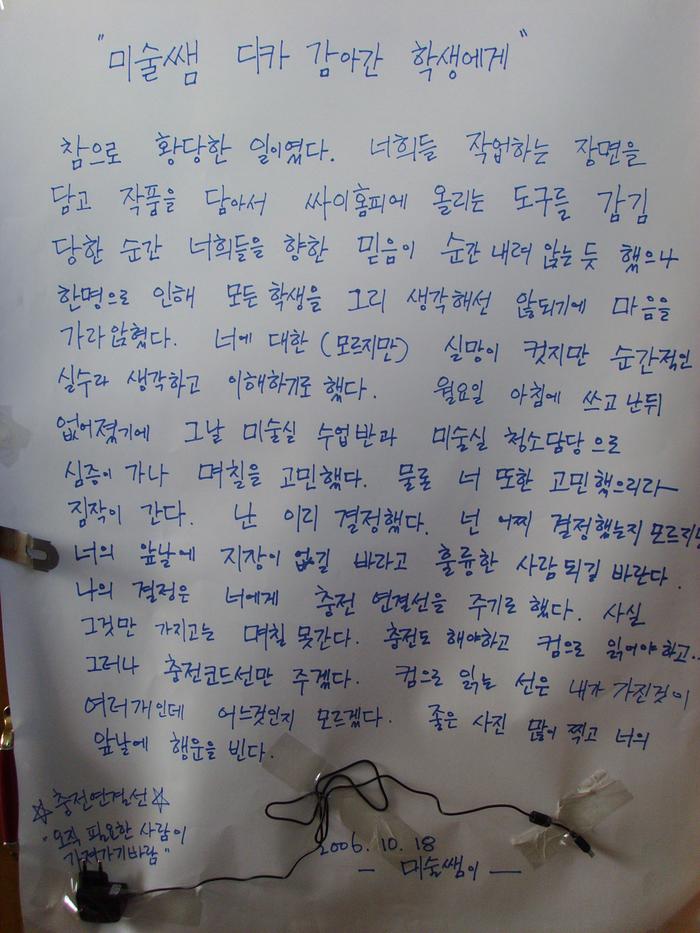 "미술쌤 디카 감아간 학생에게"
참으로 황당한 일이였다. 너희들 작업하는 장면을
담고 작품을 담아서 싸이홈피에 올리는 도구를 감김
당한 순간 너희들을 향한 믿음이 순간 내려 앉는 듯 했으나
한명으로 인해 모든 학생을 그리 생각해선 않되기에 마음을
가라앉혔다. 너에 대한 (모르지만) 실망이 컷지만 순간적인
실수라 생각하고 이해하기로 했다. 월요일 아침에 쓰고 난뒤
없어졌기에 그날 미술실 수업반과 미술실 청소담당으로
심증이 가나 며칠을 고민했다. 물론 너 또한 고민했으리라
짐작이 간다. 난 이리 결정했다. 넌 어찌 결정했는지 모르지만
너의 앞날에 지장이 없길 바라고 훌륭한 사람되길 바란다.
나의 결정은 너에게 충전 연결선을 주기로 했다. 사실
그것만 가지고는 며칠 못간다. 충전도 해야하고 컴으로 읽어야 하고..
그러나 충전코드선만 주겠다. 컴으로 읽는 선은 내가 가진것이
여러개인데 어느것인지 모르겠다. 좋은 사진 많이 찍고 너의
앞날에 행운을 빈다.
☆충전연결선☆
"오직 필요한 사람이
가져가기바람"
2006. 10. 18
— 미술쌤이 —